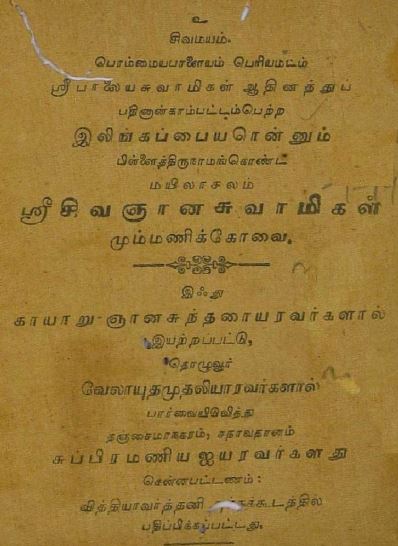 உ
சிவமயம்.
பொம்மையபாளையம் பெரியமடம்
ஸ்ரீபாலையசுவாமிகள் ஆதினத்துப்
பதினான்காம்பட்டம்பெற்ற
இலிங்கப்பையரென்னும்
பிள்ளைத்திருநாமங்கொண்ட
மயிலாசலம்
ஸ்ரீசிவஞானசுவாமிகள்
மும்மணிக்கோவை.
இஃது
காயாறு-ஞானசுந்தரையரவர்களால்
இயற்றப்பட்டு,
தொழுவூர்
வேலாயுதமுதலியாரவர்களால்
பார்வையிடுவித்து
தஞ்சைமாநகரம், சதாவதானம்
சுப்பிரமணிய ஐயரவர்களது
சென்னபட்டணம்:
வித்தியாவர்த்தனி
பதிப்பிக்கப்பட்டது.